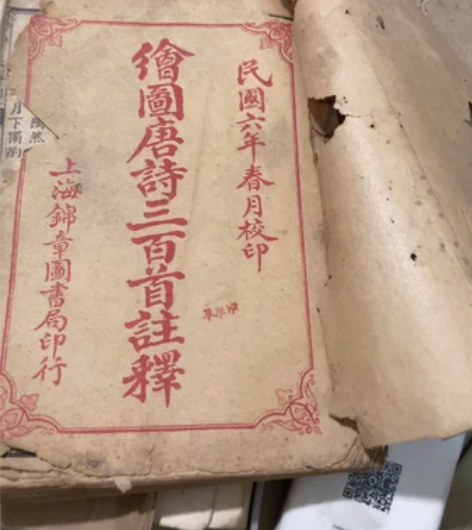 民國六年春月校印
繪圖唐詩三百首註釋
上海錦章圖書局印行
月下獨酌